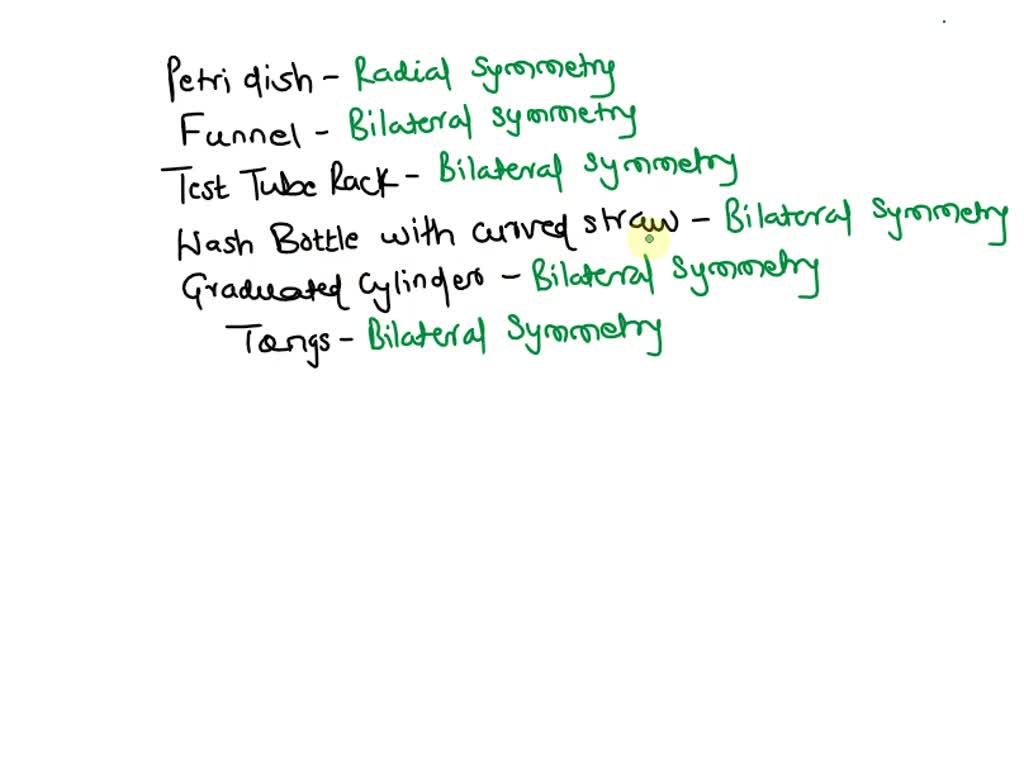 Petri dish - Radial Symmetry
Funnel - Bilateral symmetry
Test Tube Rack - Bilateral Symmetry
Wash Bottle with curved straw - Bilateral Symmetry
Graduated Cylinder - Bilateral Symmetry
Tongs - Bilateral Symmetry